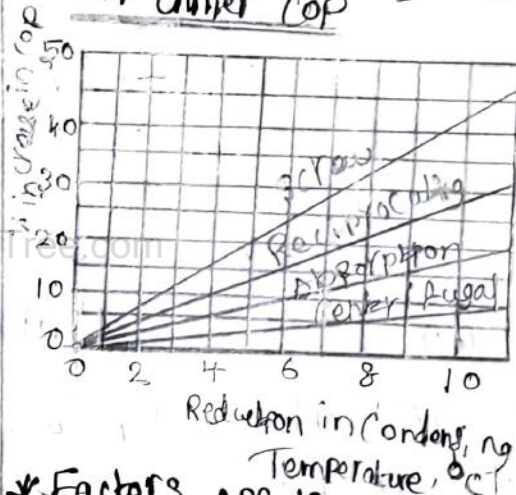 chiller COP
% increase in COP
50
40
30
20
10
0
Screw
Reciprocating
Absorption
Centrifugal
0 2 4 6 8 10
Reduction in Condensing
Temperature, °C
* Factors
Tree.com